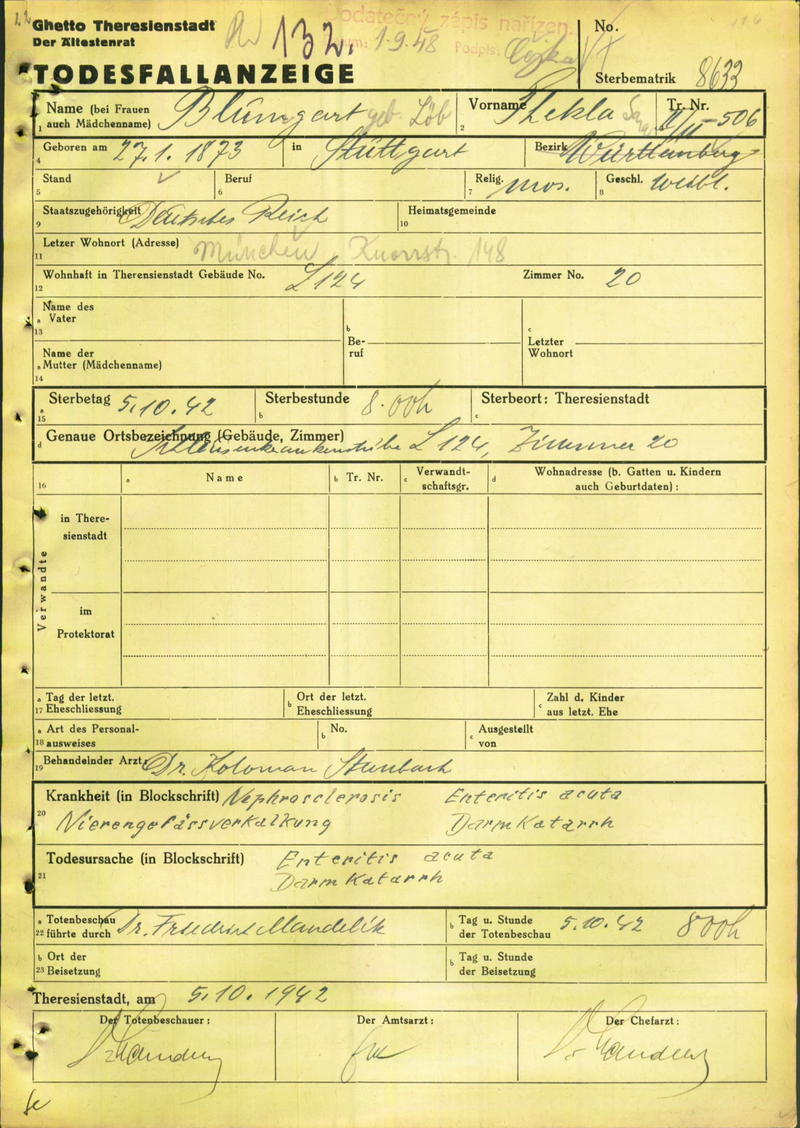 Ghetto Theresienstadt
Der Ältestenrat
TODESFALLANZEIGE
132.
Dodatečný zápis nařízen.
1-9.48 Podpis:
No.
Sterbematrik 8633
Name (bei Frauen auch Mädchenname) Blumgart geb. Löb
1
Vorname Thekla
2
Tr. Nr. II/11-506
3
Geboren am 27.1.1873 in Stuttgart Bezirk Württemberg
4
Stand Beruf Relig. mos. Geschl. weibl.
5 6 7 8
Staatszugehörigkeit Deutsches Reich Heimatsgemeinde
9 10
Letzer Wohnort (Adresse) München Knorrstr. 148
11
Wohnhaft in Theresienstadt Gebäude No. L 124 Zimmer No. 20
12
Name des
a Vater
13
b
Be-
ruf
c
Letzter
Wohnort
Name der
a Mutter (Mädchenname)
14
Sterbetag 5.10.42 Sterbestunde 8.00h Sterbeort: Theresienstadt
a 15 b c
d Genaue Ortsbezeichnung (Gebäude, Zimmer)
L 124, Zimmer 20
16 a Name b Tr. Nr. c Verwandt-
schaftsgr. d Wohnadresse (b. Gatten u. Kindern
auch Geburtdaten) :
Verwandte
in There-
sienstadt
im
Protektorat
a Tag der letzt.
17 Eheschliessung
b Ort der letzt.
Eheschliessung
c Zahl d. Kinder
aus letzt. Ehe
a Art des Personal-
18 ausweises
b No.
c Ausgestellt
von
19 Behandelnder Arzt Dr. Koloman Steinbach
Krankheit (in Blockschrift) Nephrosclerosis Enteritis acuta
20
Nierengefässverkalkung Darmkatarrh
Todesursache (in Blockschrift) Enteritis acuta
21
Darmkatarrh
a Totenbeschau
22 führte durch Dr. Friedrich Mandelik
b Tag u. Stunde
der Totenbeschau 5.10.42 8 00h
b Ort der
23 Beisetzung
b Tag u. Stunde
der Beisetzung
Theresienstadt, am 5.10.1942
Der Totenbeschauer:
Der Amtsarzt:
Der Chefarzt: